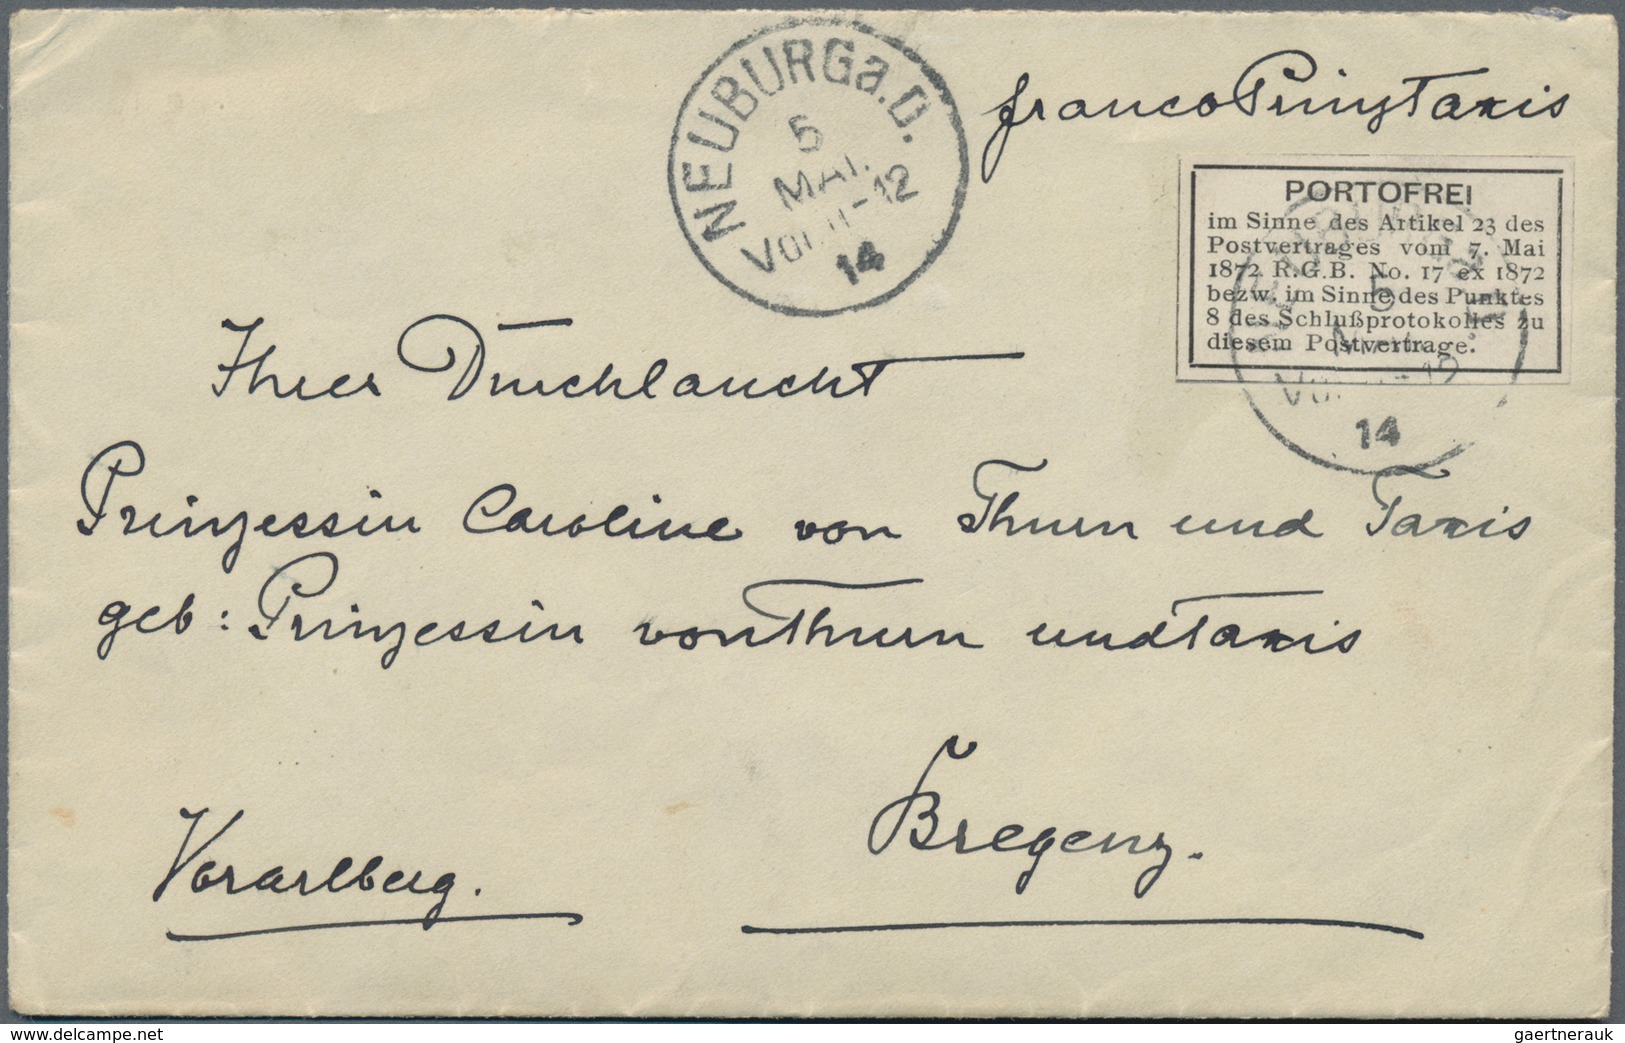 NEUBURG a.D.
5
MAI.
VORM 11-12
14
franco Prinz Taxis
PORTOFREI
im Sinne des Artikel 23 des
Postvertrages vom 7. Mai
1872 R.G.B. No. 17 ex 1872
bezw. im Sinne des Punktes
8 des Schlußprotokolles zu
diesem Postvertrage.
5
14
Ihrer Durchlaucht
Prinzessin Caroline von Thurn und Taxis
geb: Prinzessin von Thurn und Taxis
Bregenz.
Vorarlberg.
www.delcampe.net
gaertnerauk